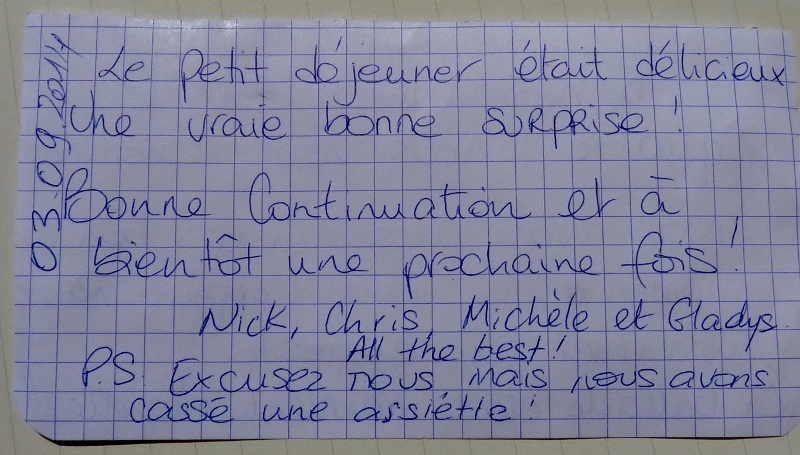 03.09.2014
Le petit déjeuner était délicieux
Une vraie bonne SURPRISE !
Bonne Continuation et à
bientôt une prochaine fois !
Nick, Chris, Michèle et Gladys.
All the best !
P.S. Excusez nous mais nous avons
cassé une assiétte !